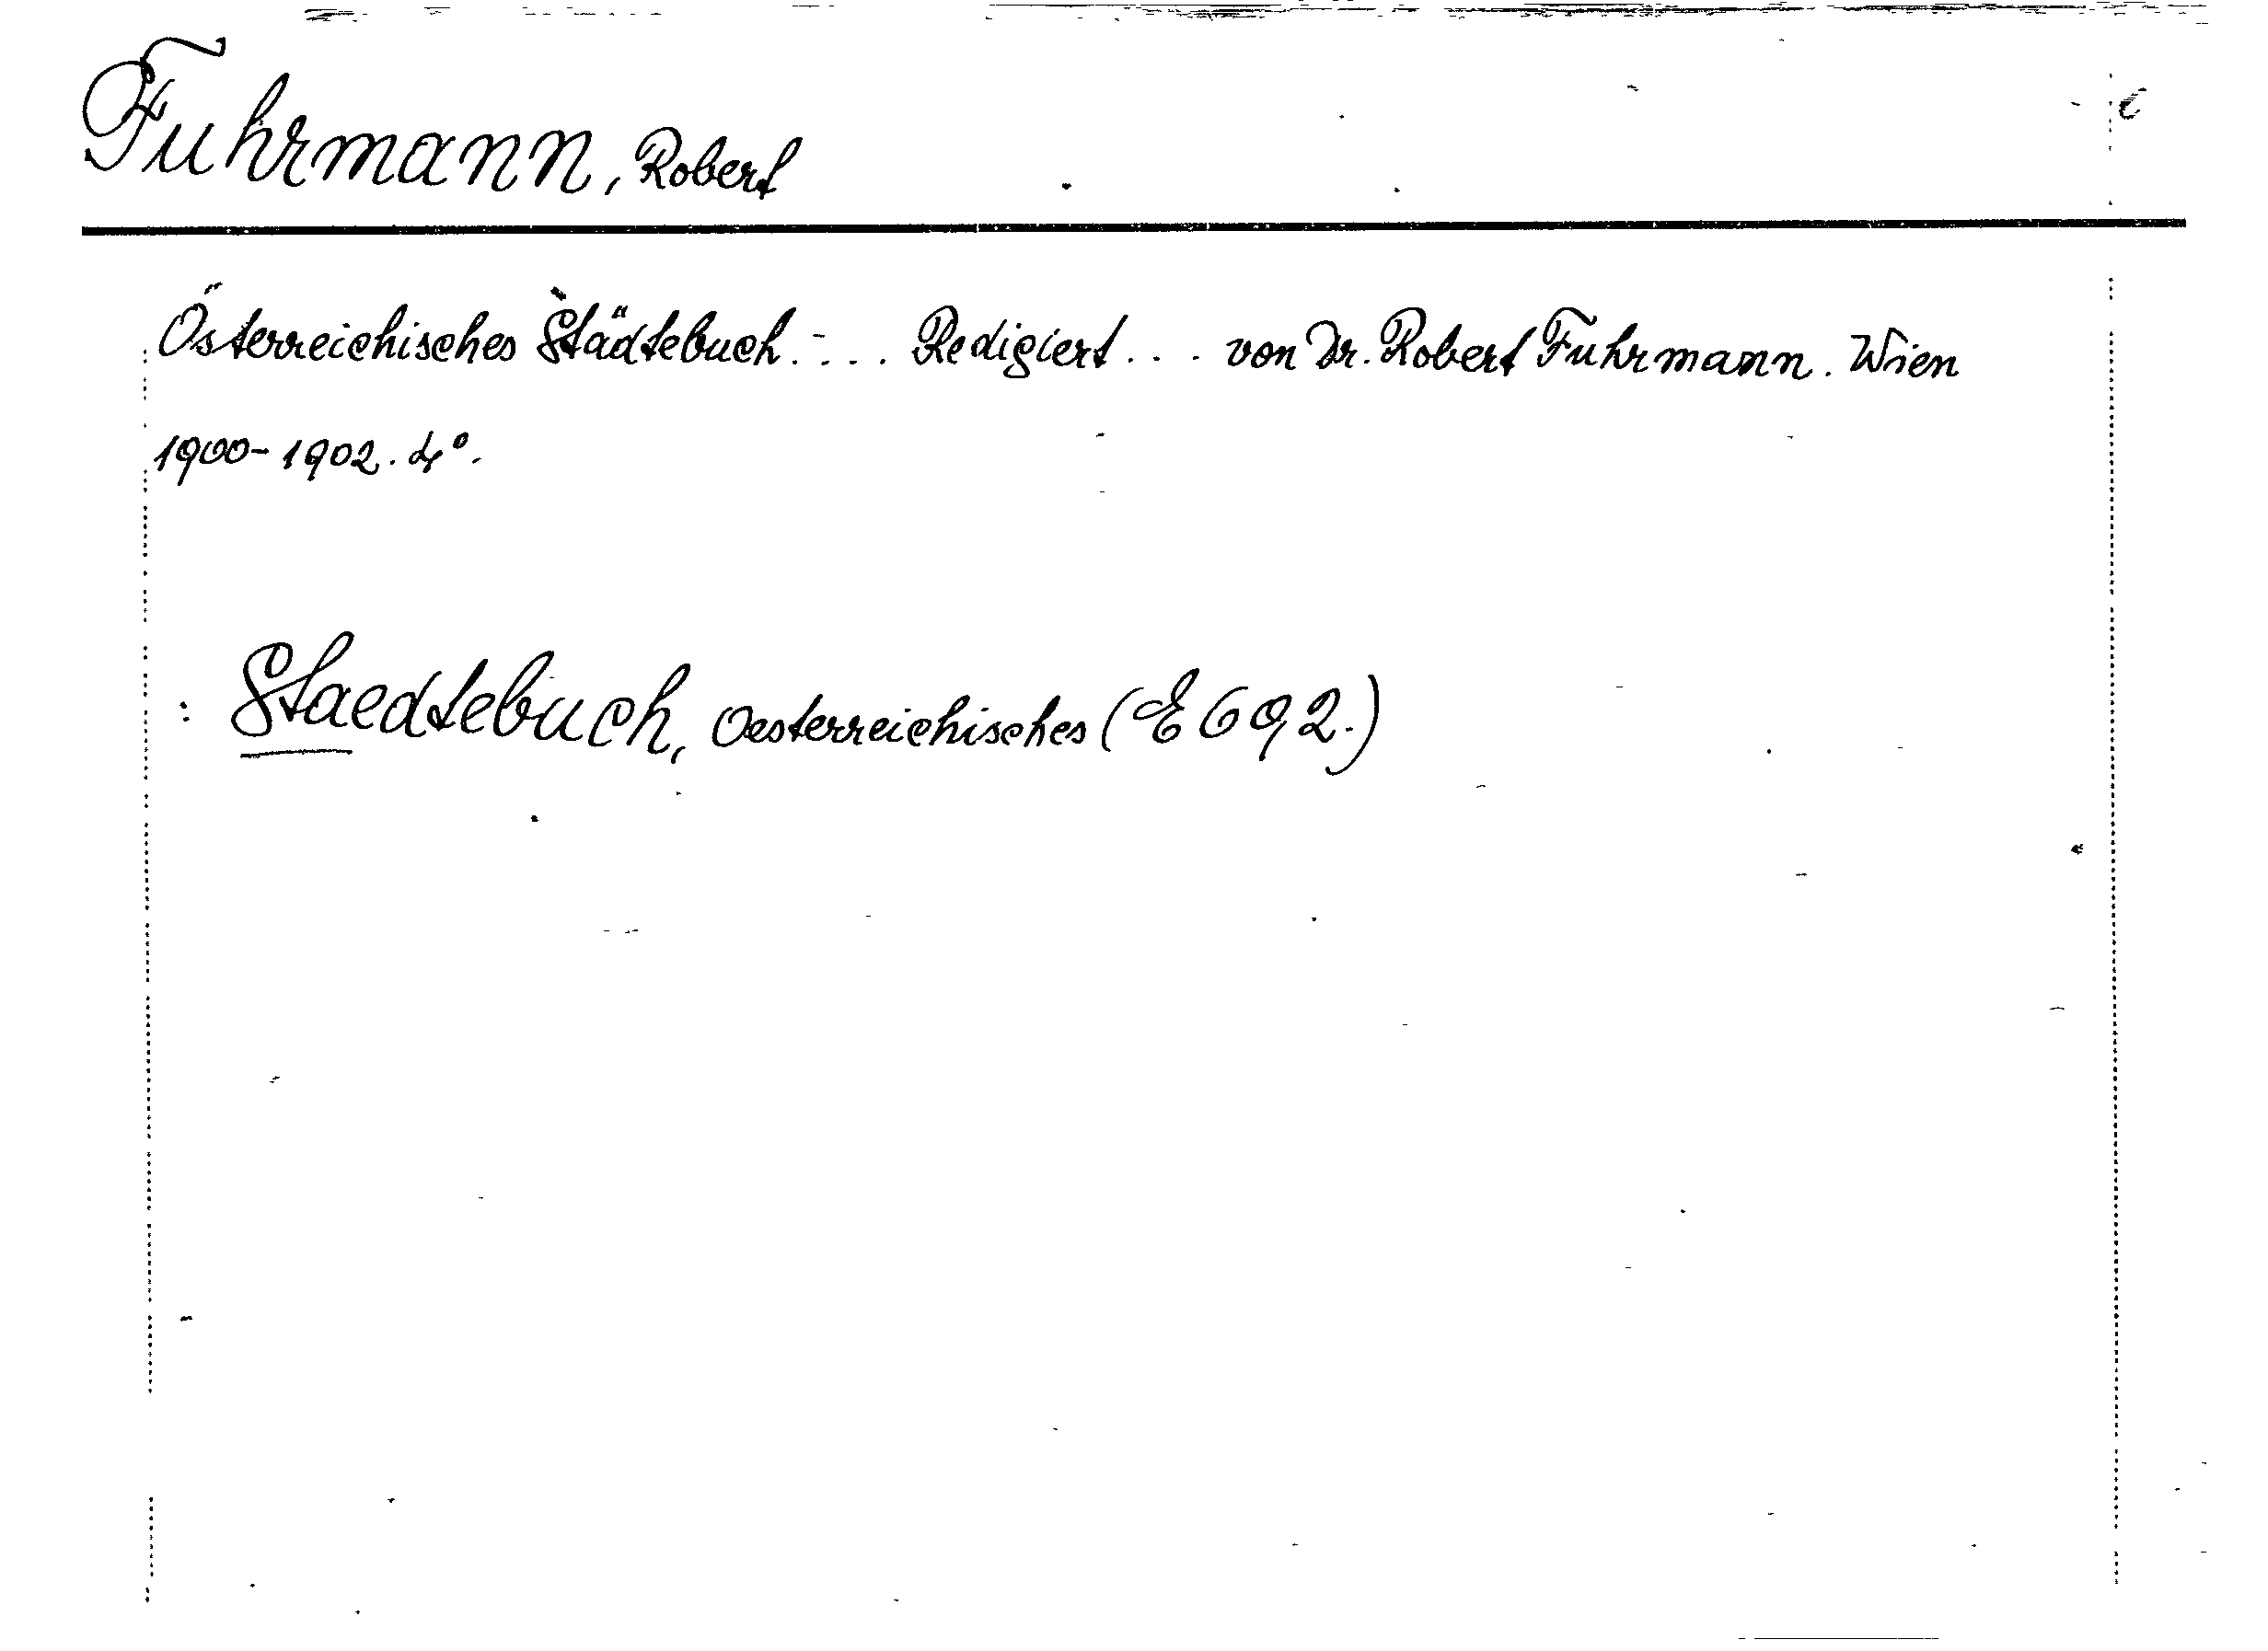 Fuhrmann, Robert
Österreichisches Städtebuch. ... Redigiert ... von Dr. Robert Fuhrmann. Wien
1900-1902. 4°.
: Staedtebuch, Oesterreichisches (E 692.)